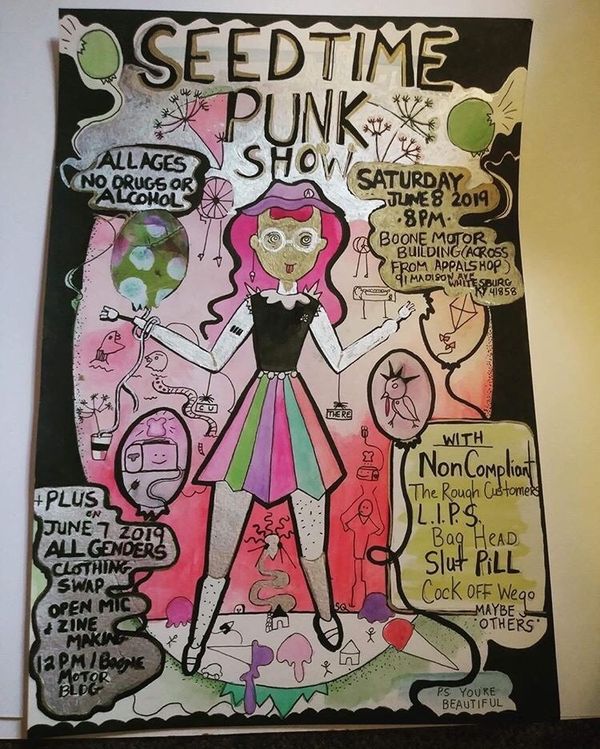 SEEDTIME
PUNK
SHOW
ALL AGES
NO DRUGS OR
ALCOHOL
SATURDAY
JUNE 8 2019
8PM
BOONE MOTOR
BUILDING (ACROSS
FROM APPALSHOP)
91 MADISON AVE
WHITESBURG
KY 41858
C U
THERE
WITH
NonCompliant
The Rough Customers
L.I.P.S.
Bag HEAD
Slut PiLL
Cock OFF Wego
MAYBE
OTHERS
+PLUS
ON
JUNE 7 2019
ALL GENDERS
CLOTHING
SWAP
OPEN MIC
& ZINE
MAKING
12PM/Boone
MOTOR
BLDG
SQ
P.S YOU'RE
BEAUTIFUL